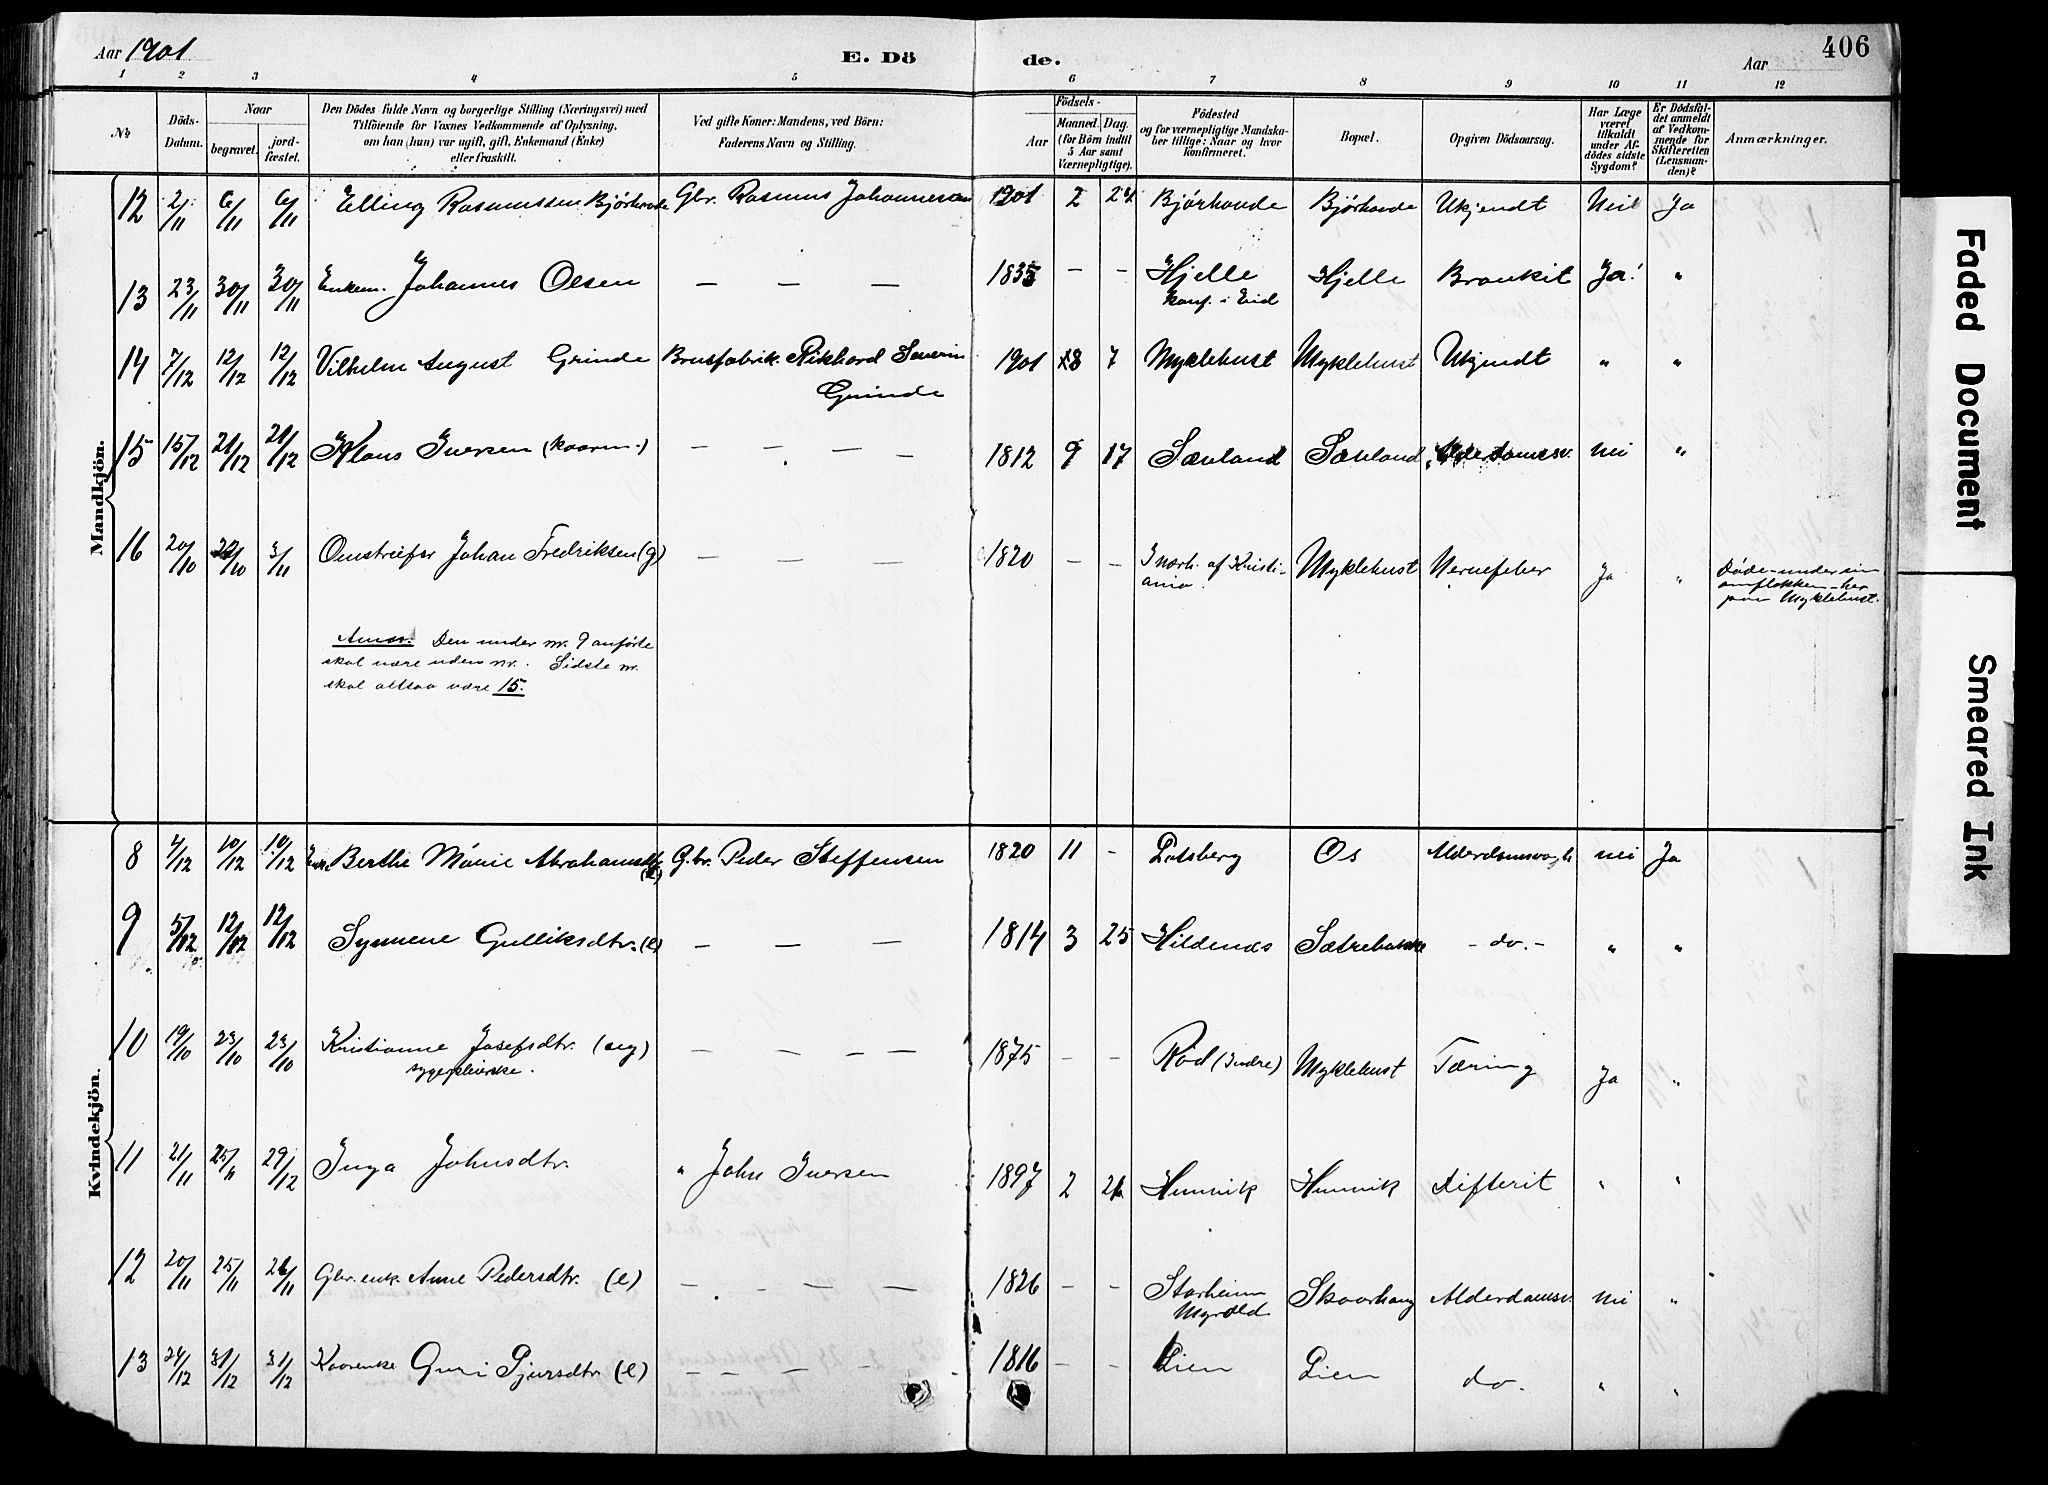 Aar 1901. E. Dö de. Aar 406
1 2 3 4 5 6 7 8 9 10 11 12
No
Döds-Datum.
Naar
begravet.
jord-fæstet.
Den Dödes fulde Navn og borgerlige Stilling (Næringsvei) med
Tilföiende for Voxnes Vedkommende af Oplysning,
om han (hun) var ugift, gift, Enkemand (Enke)
eller fraskilt.
Ved gifte Koner: Mandens, ved Börn:
Faderens Navn og Stilling.
Födsels-
Aar
Maaned. Dag.
(for Börn indtil
5 Aar samt
Værnepligtige).
Födested
og for værnepligtige Mandska-
ber tillige: Naar og hvor
konfirmeret.
Bopæl.
Opgiven Dödsaarsag.
Har Læge
været
tilkaldt
under Af-
dödes sidste
Sygdom?
Er Dödsfal-
det anmeldt
af Vedkom-
mende for
Skifteretten
(Lensman-
den)?
Anmærkninger.
Mandkjön.
12 2/11 6/11 6/11 Elling Rasmussen Bjørhovde Gbr. Rasmus Johannessen 1901 2 24 Bjørhovde Bjørhovde Ukjendt Nei Ja
13 23/11 30/11 30/11 Enkem. Johannes Olsen — — — 1835 - - Hjelle Hjelle Bronkit Ja! "
konf. i Eid
14 7/12 12/12 12/12 Vilhelm August Grinde Brusfabrik. Rikhard Severin 1901 8 7 Myklebust Myklebust Ukjendt " "
Grinde
15 15/12 21/12 21/12 Klaus Iversen (kaarm.) — — — 1812 9 17 Sævland Sævland Alderdomssv. nei "
16 20/10 22/10 3/11 Omstreifer Johan Fredriksen (g) — — — 1820 - - I nærh. af Kristi- Myklebust Nervefeber Ja " Døde under sin
ania. omflakken her
paa Myklebust.
Anm. Den under nr. 9 anførte
skal være uden nr. Sidste nr.
skal altsaa være 15.
Kvindekjön.
8 4/12 10/12 10/12 Berthe Marie Abrahamsdtr. Gbr. Peder Steffensen 1820 11 - Lotsberg Os nei Ja
9 5/12 12/12 12/12 Synneve Gulliksdtr. (e) — — — 1814 3 25 Hildenes Sætrebakke - do. - " "
10 19/10 23/10 23/10 Kristianne Josefsdtr. (ug) — — — — 1875 - - Rød (Indre) Myklebust Tæring Ja "
sygepleierske.
11 21/11 25/11 29/12 Inga Johnsdtr. " John Iversen 1897 2 Hunvik Hunvik Difterit " "
12 20/11 25/11 26/11 Gbr. enk. Anne Pedersdtr. (e) — — — 1826 - - Starheim Skaarhaug Alderdomsv. nei "
Myrold
13 24/12 31/12 31/12 Kaarenke Guri Sjursdtr. (e) — — — — 1816 - - Lien Lien do. " "
Faded Document
Smeared Ink